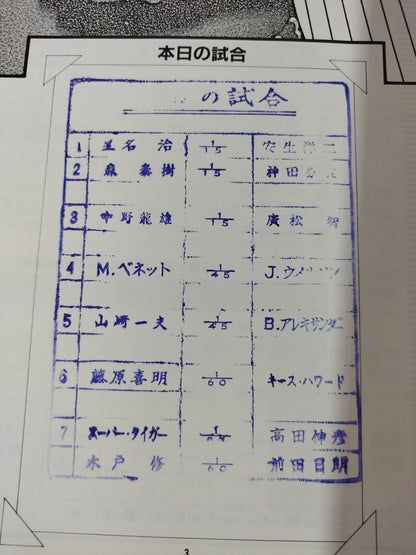 本日の試合
の試合
1 星名 治 1/15 安生洋二
2 森 泰樹 1/15 神田
3 中野龍雄 1/15 廣松 智
4 M.ベネット 1/45 J.
5 山崎一夫 1/45 B.アレキサンダー
6 藤原喜明 1/60 キース・ハワード
7 スーパー・タイガー 高田伸彦
木戸 修 1/60 前田日明
3